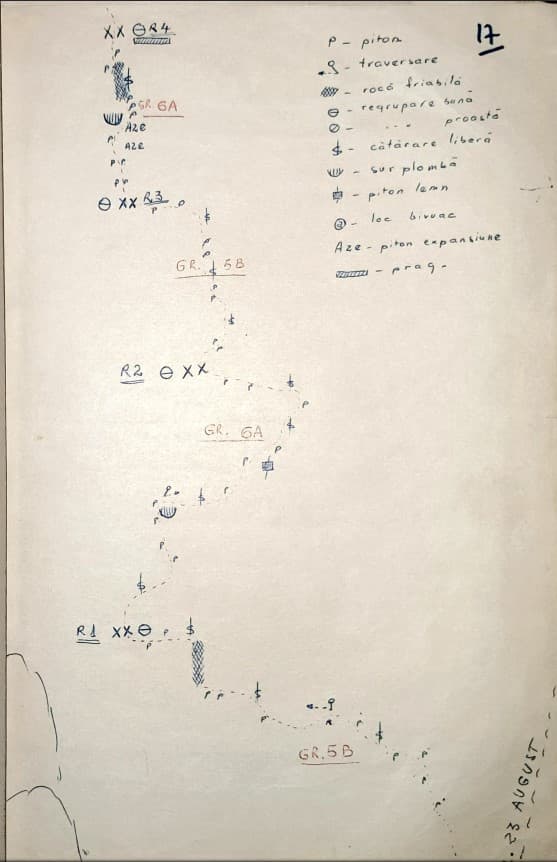 17
P - piton
traversare
rocă friabilă
regrupare bună
" " proastă
cățărare liberă
surplombă
piton lemn
loc bivuac
Aze - piton expansiune
prag.
XX R4
GR. 6A
Aze
Aze
XX R3
GR. 5B
R2 XX
GR. 6A
R1 XX
GR. 5B
23 AUGUST